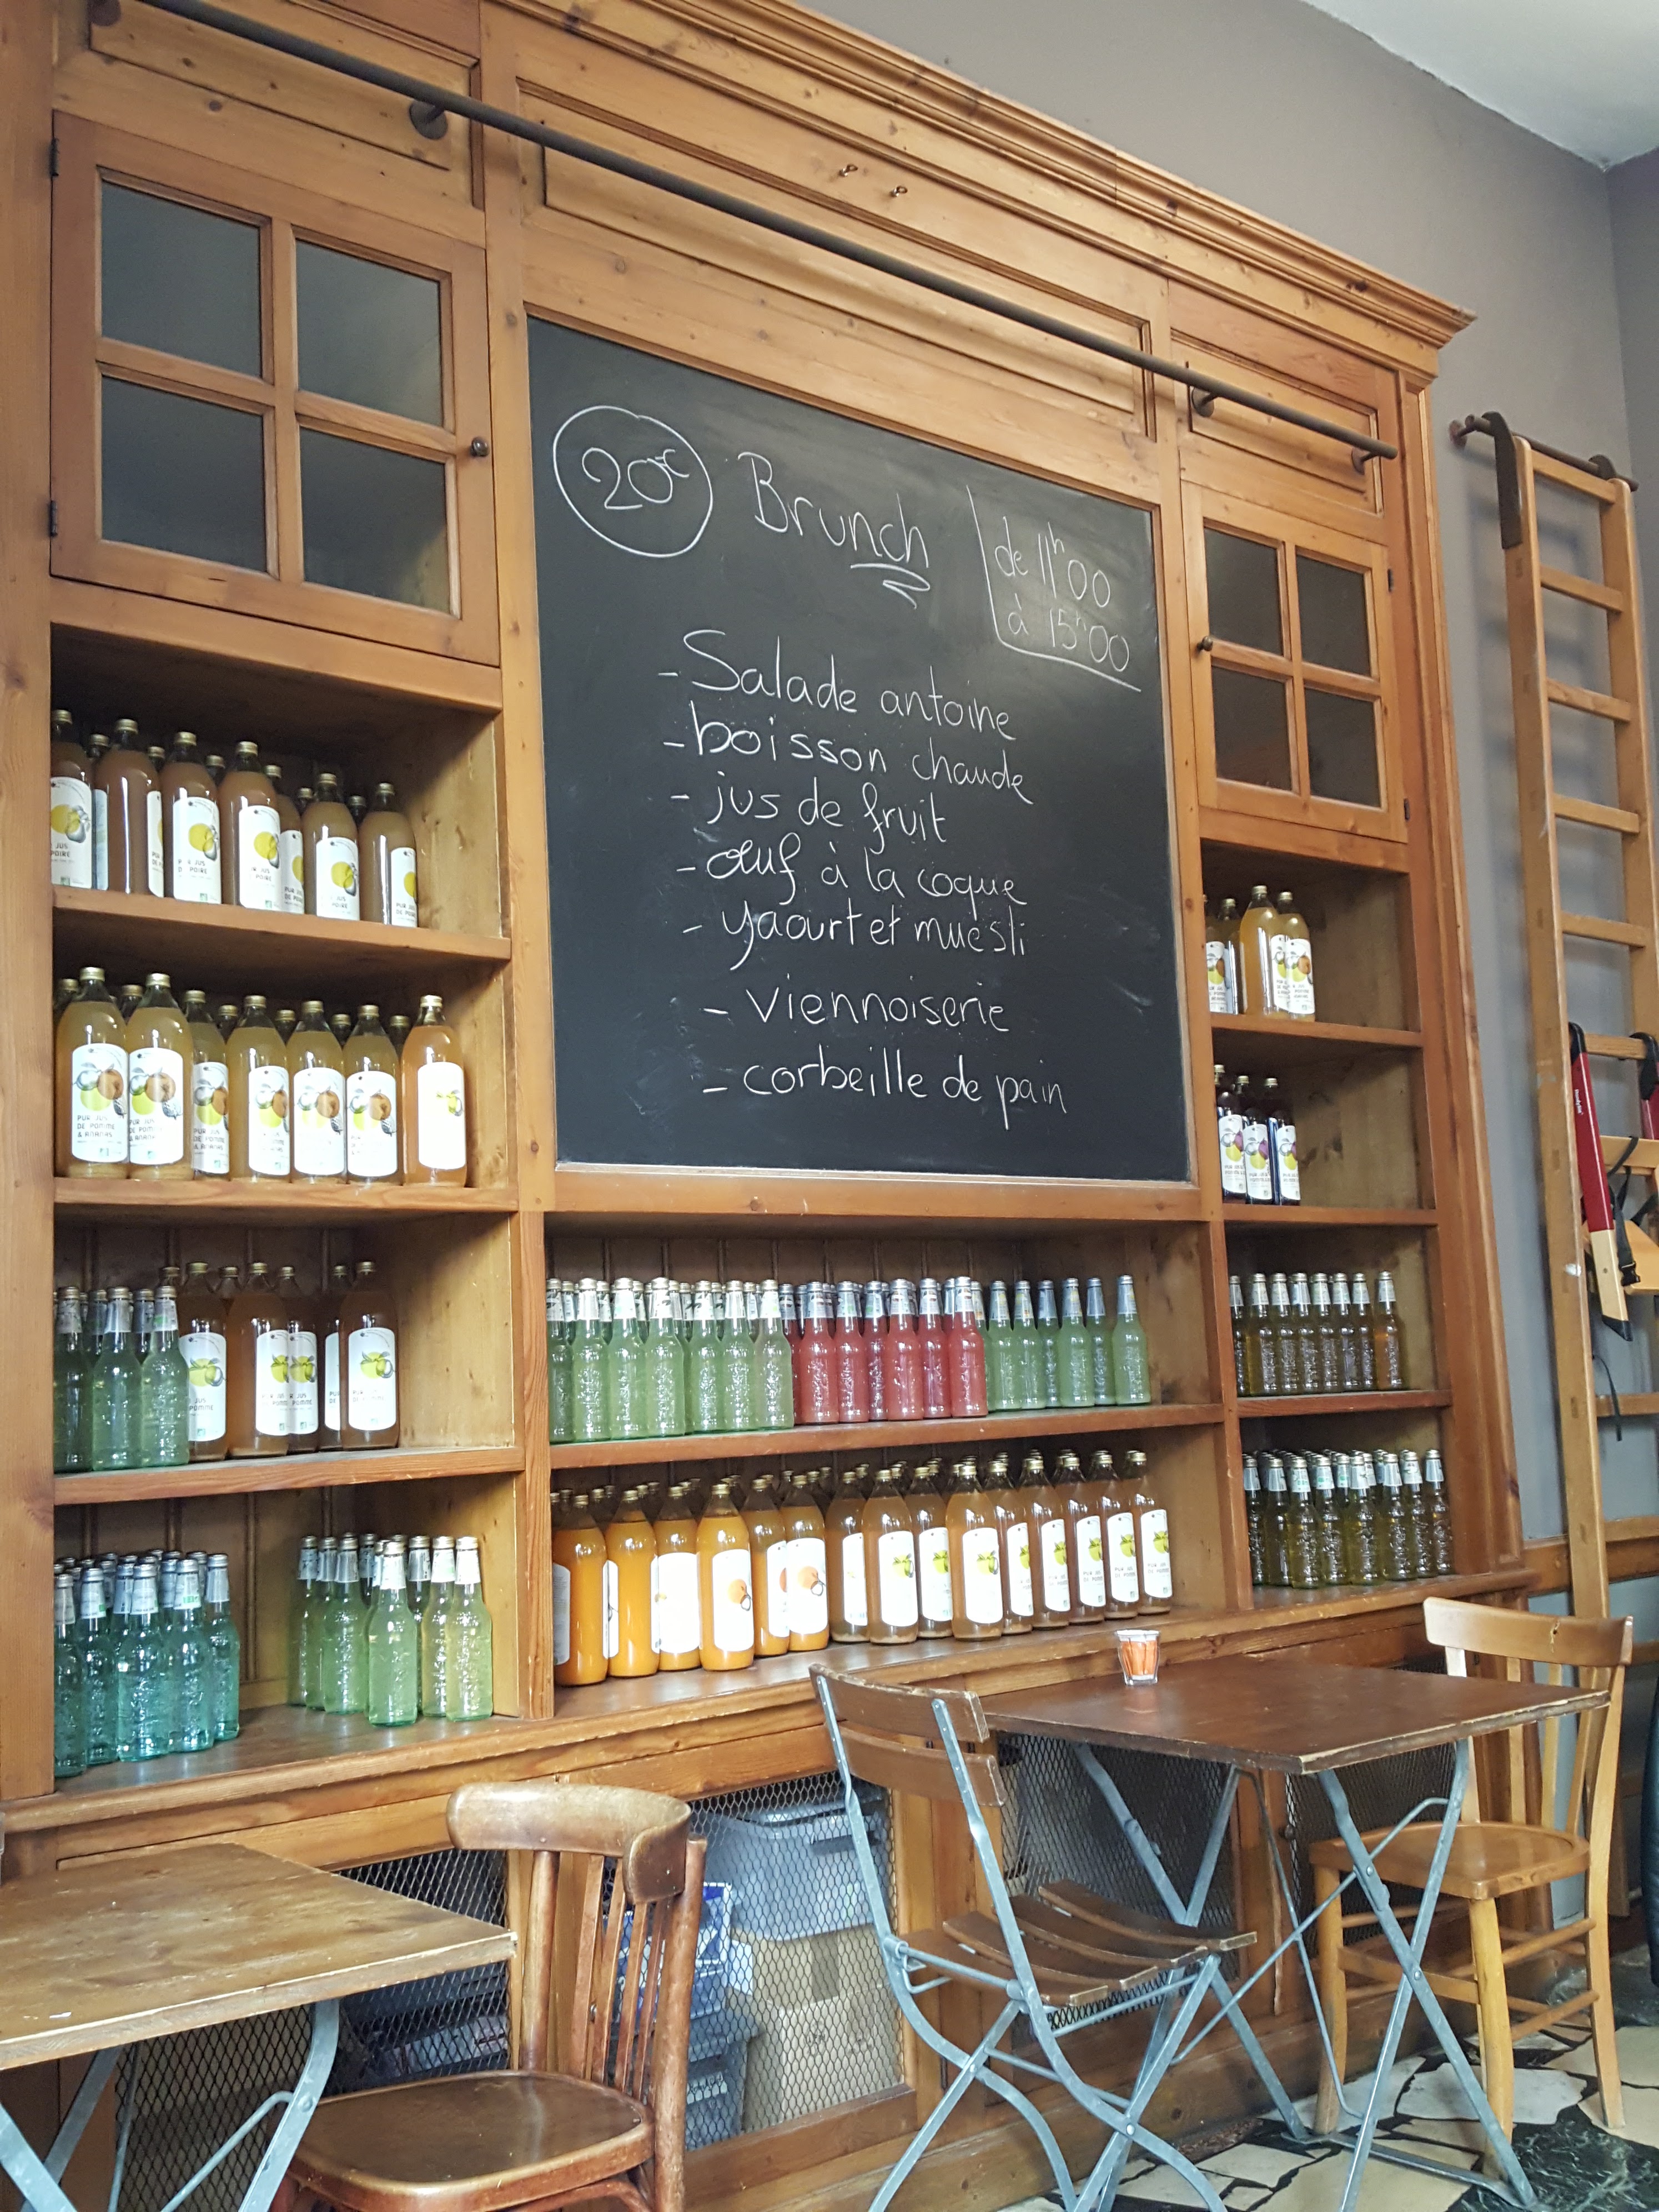 20€ Brunch
de 11h00
à 15h00
- Salade antoine
- boisson chaude
- jus de fruit
- œuf à la coque
- yaourt et muesli
- viennoiserie
- corbeille de pain
PUR JUS
DE POIRE
JUS
POIRE
PUR JUS
DE POMME
& ANANAS
PUR JUS
DE POMME